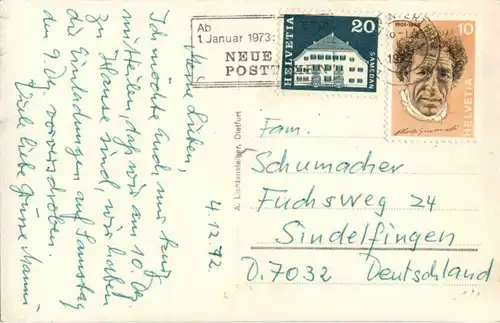 Ab
1. Januar 1973:
NEUE
POSTT
HELVETIA
20
SAMEDAN
1900-1966
10
HELVETIA
Meine Lieben,
Ich möchte Euch nur kurz
mitteilen, daß wir am 10. Dez
zu Hause sind, wir haben
die Einladungen auf Samstag
den 9. Dez verschoben.
Viele liebe Grüsse Mamm-
4.12.72
A. Lichtensteiger, Dietfurt
Fam.
Schumacher
Fuchsweg 24
Sindelfingen
D.7032 Deutschland